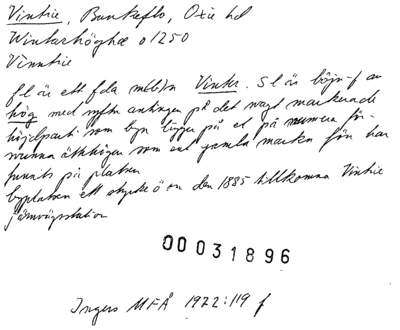 Vintrie, Bunkeflo, Oxie hd
Wintarhöghæ o 1250
Vinntrie
fl är ett fda mlbtn Vinter. Sl är böjn-f av
hög med syftn antingen på det svagt markerade
höjdparti som byn ligger på el på numera för-
svunna ätthögar som enl gamla marken fön har
funnits på platsen
byplatsen ett stycke ö om den 1885 tillkomna Vintrie
järnvägsstation
00031896
Ingers MFÅ 1972:119 f